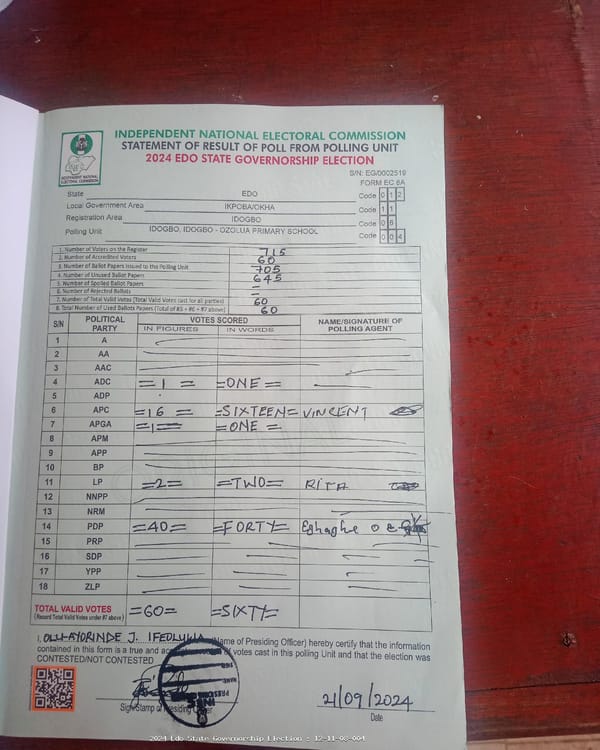 INDEPENDENT NATIONAL ELECTORAL COMMISSION
STATEMENT OF RESULT OF POLL FROM POLLING UNIT
2024 EDO STATE GOVERNORSHIP ELECTION
INDEPENDENT NATIONAL ELECTORAL COMMISSION
S/N: EG/0002519
FORM EC 8A
State EDO Code 0 1 2
Local Government Area IKPOBA/OKHA Code 1 1
Registration Area IDOGBO Code 0 8
Polling Unit IDOGBO, IDOGBO - OZOLUA PRIMARY SCHOOL Code 0 0 4
1. Number of Voters on the Register 715
2. Number of Accredited Voters 60
3. Number of Ballot Papers Issued to the Polling Unit 705
4. Number of Unused Ballot Papers 645
5. Number of Spoiled Ballot Papers =
6. Number of Rejected Ballots =
7. Number of Total Valid Votes (Total Valid Votes cast for all parties) 60
8. Total Number of Used Ballots Papers (Total of #5 + #6 + #7 above) 60
S/N POLITICAL PARTY VOTES SCORED NAME/SIGNATURE OF POLLING AGENT
IN FIGURES IN WORDS
1 A
2 AA
3 AAC
4 ADC =1= =ONE=
5 ADP
6 APC =16= =SIXTEEN= VINCENT
7 APGA =1= =ONE=
8 APM
9 APP
10 BP
11 LP =2= =TWO= RITA
12 NNPP
13 NRM
14 PDP =40= =FORTY=
15 PRP
16 SDP
17 YPP
18 ZLP
TOTAL VALID VOTES =60= =SIXTY=
(Record Total Valid Votes under #7 above)
I, J. (Name of Presiding Officer) hereby certify that the information
contained in this form is a true and votes cast in this polling Unit and that the election was
CONTESTED/NOT CONTESTED
Sign/Stamp of Presiding
21/09/2024
Date
2024 Edo State Governorship Election : 12-11-08-004